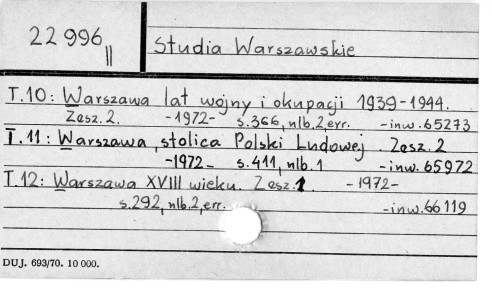 22996 II
Studia Warszawskie
T.10: Warszawa lat wojny i okupacji 1939-1944.
Zesz. 2. -1972- s.366, nlb.2, err. -inw.65273
T.11: Warszawa stolica Polski Ludowej. Zesz. 2
-1972- s.411, nlb.1 -inw.65972
T.12: Warszawa XVIII wieku. Zesz.1 -1972-
s.292, nlb.2, err. -inw.66119
DUJ. 693/70. 10 000.